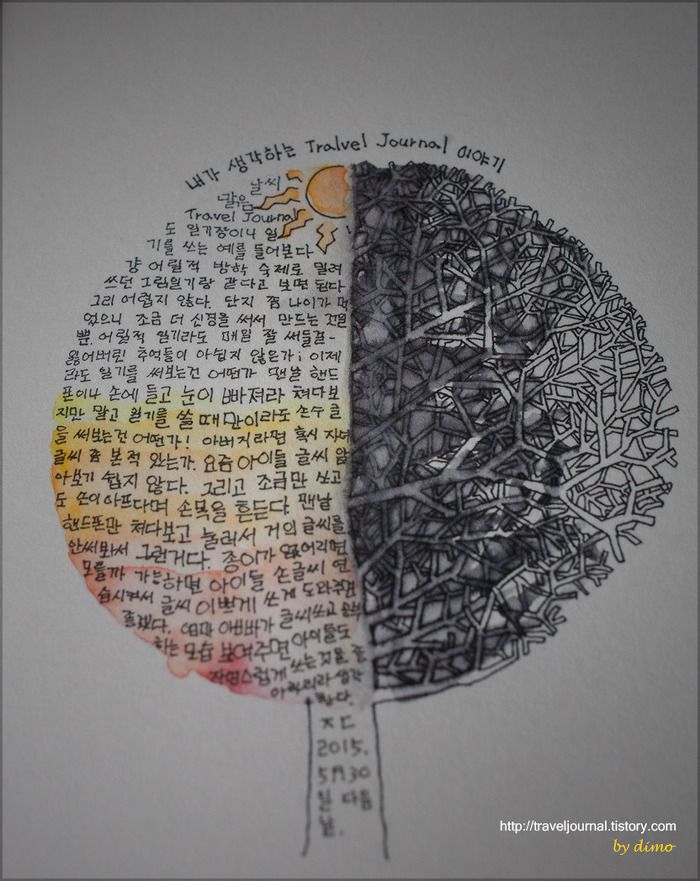 내가 생각하는 Tralvel Journal 이야기
날씨
맑음
Travel Journal
도 일기장이니 일
기를 쓰는 예를 들어본다
걍 어릴적 방학 숙제로 밀려
쓰던 그림일기랑 같다고 보면 된다
그리 어렵지 않다. 단지 좀 나이가 먹
었으니 조금 더 신경을 써서 만드는 것일
뿐. 어릴적 일기라도 매일 잘 써둘걸-
잃어버린 추억들이 아쉽지 않은가; 이제
라도 일기를 써보는건 어떤가 맨날 핸드
폰이나 손에 들고 눈이 빠져라 쳐다보
지만 말고 일기를 쓸 때만이라도 손수 글
을 써보는건 어떤가! 아버지라면 혹시 자녀
글씨 좀 본적 있는가. 요즘 아이들 글씨 알
아보기 쉽지 않다. 그리고 조금만 쓰고
도 손이 아프다며 손목을 흔든다. 맨날
핸드폰만 쳐다보고 눌러서 거의 글씨를
안써봐서 그런거다. 종이가 없어지면
모를까 가능하면 아이들 손글씨 연
습시면서 글씨 이쁘게 쓰게 도와주면
좋겠다. 엄마 아빠가 글씨쓰고
하는 모습 보여주면 아이들도
자연스럽게 쓰는것을 좋
아하리라 생각
한다.
ㅈㄷ
2015.
5月30
일 다음
날.
http://traveljournal.tistory.com
by dimo